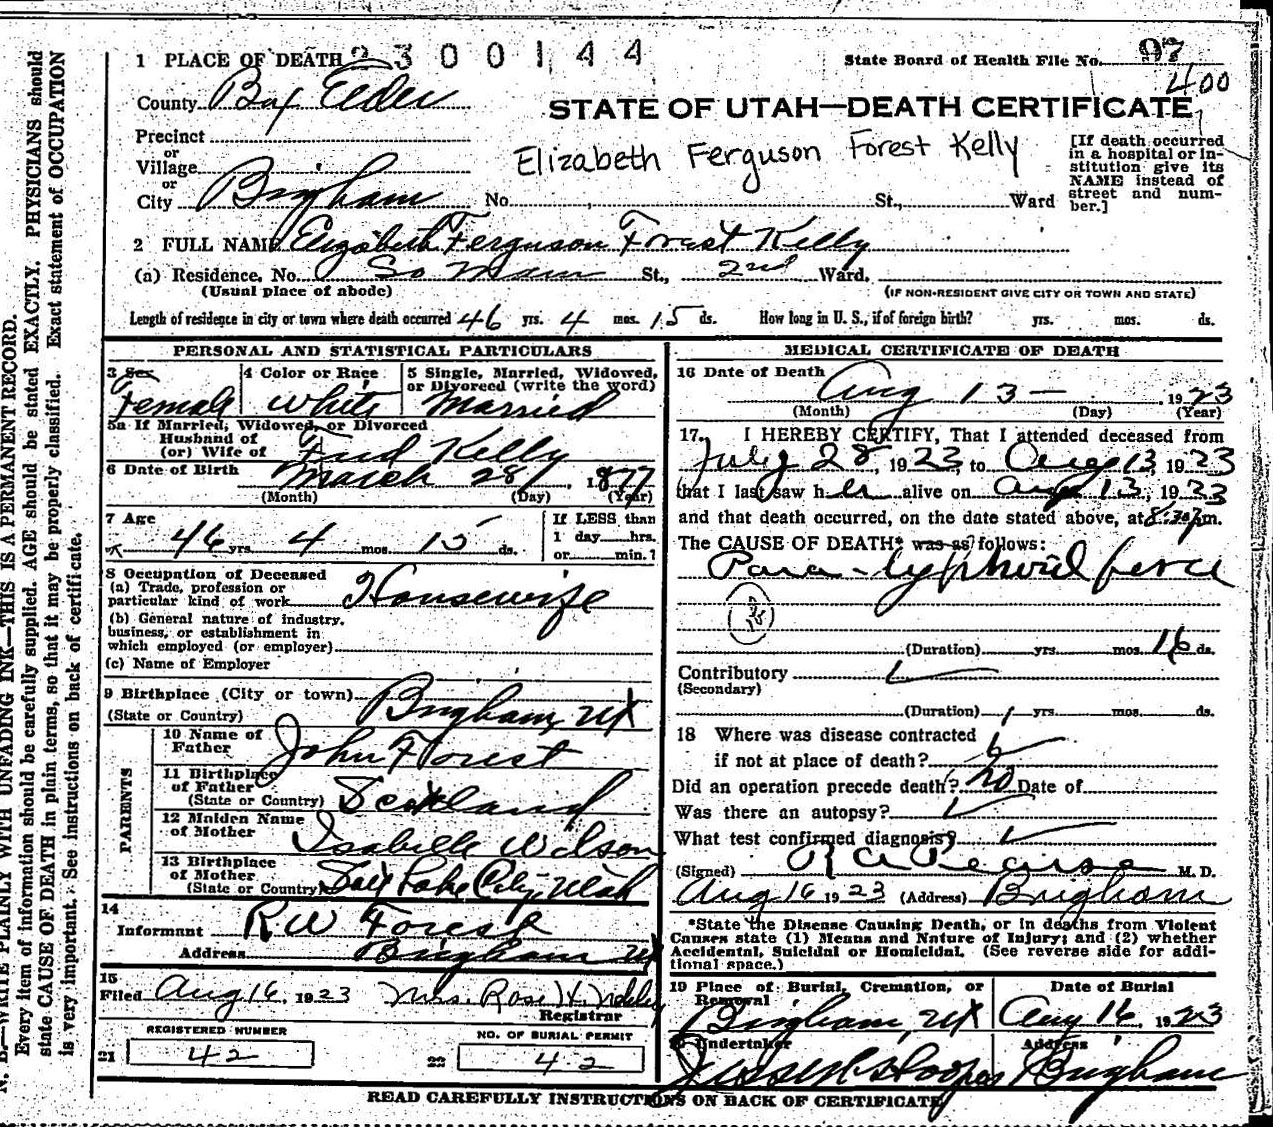 1 PLACE OF DEATH 2300144
State Board of Health File No. 97
400
County Box Elder
STATE OF UTAH—DEATH CERTIFICATE
Precinct
or
Village
or
City Brigham No. St., Ward
Elizabeth Ferguson Forest Kelly
[If death occurred
in a hospital or in-
stitution give its
NAME instead of
street and num-
ber.]
2 FULL NAME Elizabeth Ferguson Forest Kelly
(a) Residence, No. So Main St., 2nd Ward.
(Usual place of abode) (IF NON-RESIDENT GIVE CITY OR TOWN AND STATE)
Length of residence in city or town where death occurred 46 yrs. 4 mos. 15 ds. How long in U. S., if of foreign birth? yrs. mos. ds.
PERSONAL AND STATISTICAL PARTICULARS
3 Sex 4 Color or Race 5 Single, Married, Widowed,
or Divorced (write the word)
Female White Married
5a If Married, Widowed, or Divorced
Husband of
(or) Wife of Fred Kelly
6 Date of Birth March 28, 1877
(Month) (Day) (Year)
7 Age 46 yrs. 4 mos. 15 ds.
If LESS than
1 day hrs.
or min.?
8 Occupation of Deceased
(a) Trade, profession or
particular kind of work Housewife
(b) General nature of industry,
business, or establishment in
which employed (or employer)
(c) Name of Employer
9 Birthplace (City or town)
(State or Country) Brigham, Ut
PARENTS
10 Name of
Father John Forest
11 Birthplace
of Father
(State or Country) Scotland
12 Maiden Name
of Mother Isabelle Wilson
13 Birthplace
of Mother
(State or Country) Salt Lake City, Utah
14
Informant R W Forest
Address Brigham Ut
15
Filed Aug 16, 1923 Mrs. Rose H.
Registrar
REGISTERED NUMBER NO. OF BURIAL PERMIT
21 42 22 42
MEDICAL CERTIFICATE OF DEATH
16 Date of Death Aug 13 — 1923
(Month) (Day) (Year)
17. I HEREBY CERTIFY, That I attended deceased from
July 28, 1923, to Aug 13, 1923
that I last saw her alive on Aug 13, 1923
and that death occurred, on the date stated above, at 8:30 p m.
The CAUSE OF DEATH* was as follows:
Para-typhoid fever
(Duration) yrs. mos. 16 ds.
Contributory
(Secondary)
(Duration) yrs. mos. ds.
18 Where was disease contracted
if not at place of death?
Did an operation precede death? no Date of
Was there an autopsy?
What test confirmed diagnosis?
(Signed) R A Pearse M. D.
Aug 16 1923 (Address) Brigham
*State the Disease Causing Death, or in deaths from Violent
Causes state (1) Means and Nature of Injury; and (2) whether
Accidental, Suicidal or Homicidal. (See reverse side for addi-
tional space.)
19 Place of Burial, Cremation, or
Removal Date of Burial
Brigham, Ut Aug 16, 1923
20 Undertaker Address
Hooper Brigham
READ CAREFULLY INSTRUCTIONS ON BACK OF CERTIFICATE
N. B.—WRITE PLAINLY WITH UNFADING INK—THIS IS A PERMANENT RECORD.
Every item of information should be carefully supplied. AGE should be stated EXACTLY. PHYSICIANS should
state CAUSE OF DEATH in plain terms, so that it may be properly classified. Exact statement of OCCUPATION
is very important. See instructions on back of certificate.